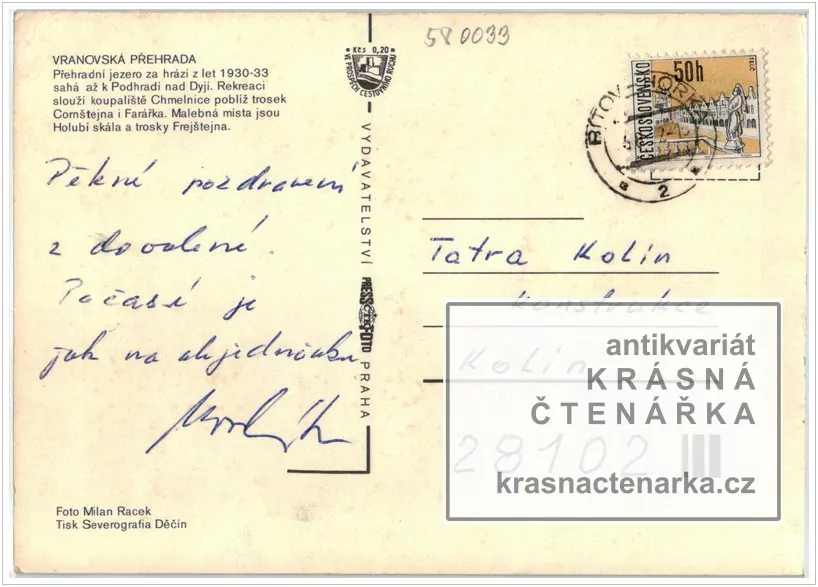 580033
VRANOVSKÁ PŘEHRADA
Přehradní jezero za hrází z let 1930-33
sahá až k Podhradí nad Dyjí. Rekreaci
slouží koupaliště Chmelnice poblíž trosek
Cornštejna i Farářka. Malebná místa jsou
Holubí skála a trosky Frejštejna.
Kčs 0,20
VE PROSPĚCH CESTOVNÍHO RUCHU
Pěkné pozdravení
z dovolené.
Počasí je
jak na objednávku
Foto Milan Racek
Tisk Severografia Děčín
VYDAVATELSTVÍ PRESSFOTO PRAHA
50h
ČESKOSLOVENSKO
TELČ
BÍTOV
2
Tatra Kolín
konstrukce
Kolín
28102
antikvariát
KRÁSNÁ
ČTENÁŘKA
krasnactenarka.cz